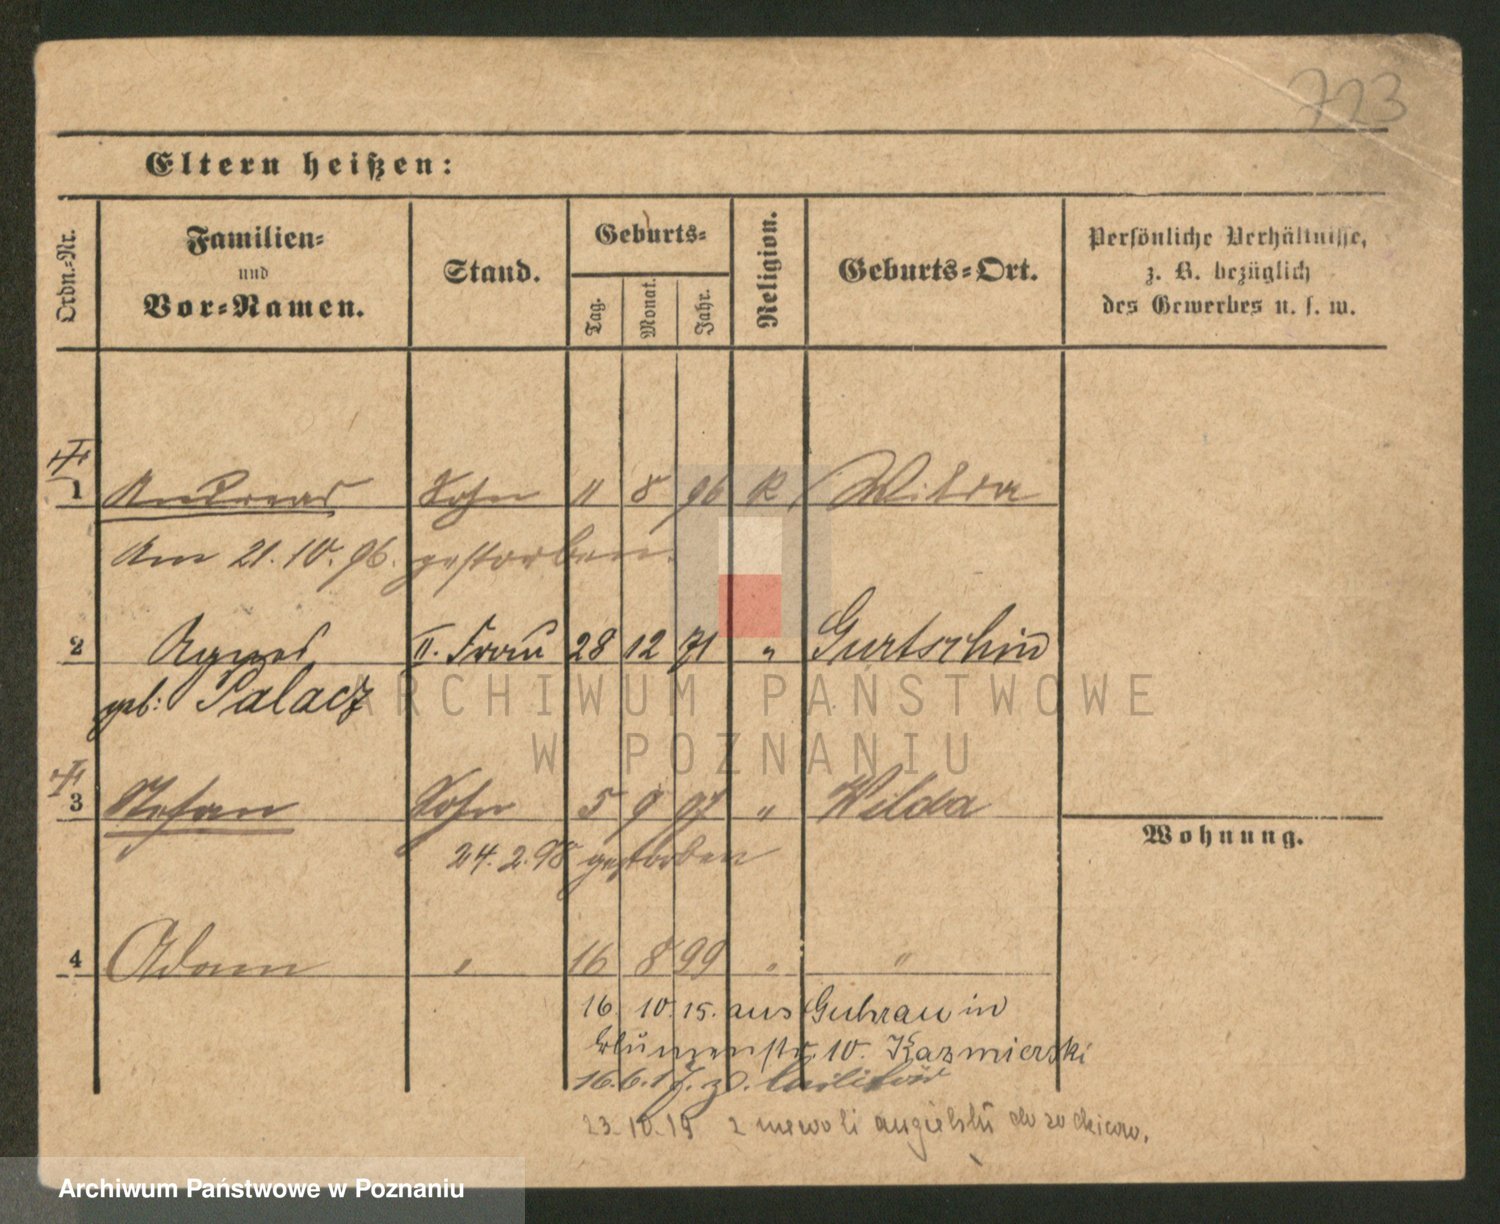 723
Eltern heißen:
Ordn.-Nr.
Familien-
und
Vor-Namen.
Stand.
Geburts-
Tag.
Monat.
Jahr.
Religion.
Geburts-Ort.
Persönliche Verhältnisse,
z. B. bezüglich
des Gewerbes u. s. w.
1 Andreas Sohn 11 8 96 K Wilda
Am 21.10.96. gestorben.
2 Agnes II. Frau 28 12 71 " Gurtschin
geb: Palacz
3 Stefan Sohn 5 9 97 " Wilda
24.2.98 gestorben
Wohnung.
4 Adam " 16 8 99 " "
16. 10. 15. aus Guhrau in
Blumenstr. 10. Kazmierski
16.6.17. z. Militär
23.10.19 z niewoli do rodziców.
ARCHIWUM PAŃSTWOWE
W POZNANIU
Archiwum Państwowe w Poznaniu